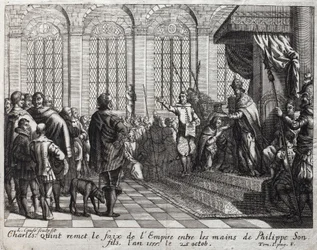 Charles Quint remet le faix de l'Empire entre les mains de Philippe Son
fils. l'an 1555. le 25 octob. Tom. I. pag. 1.